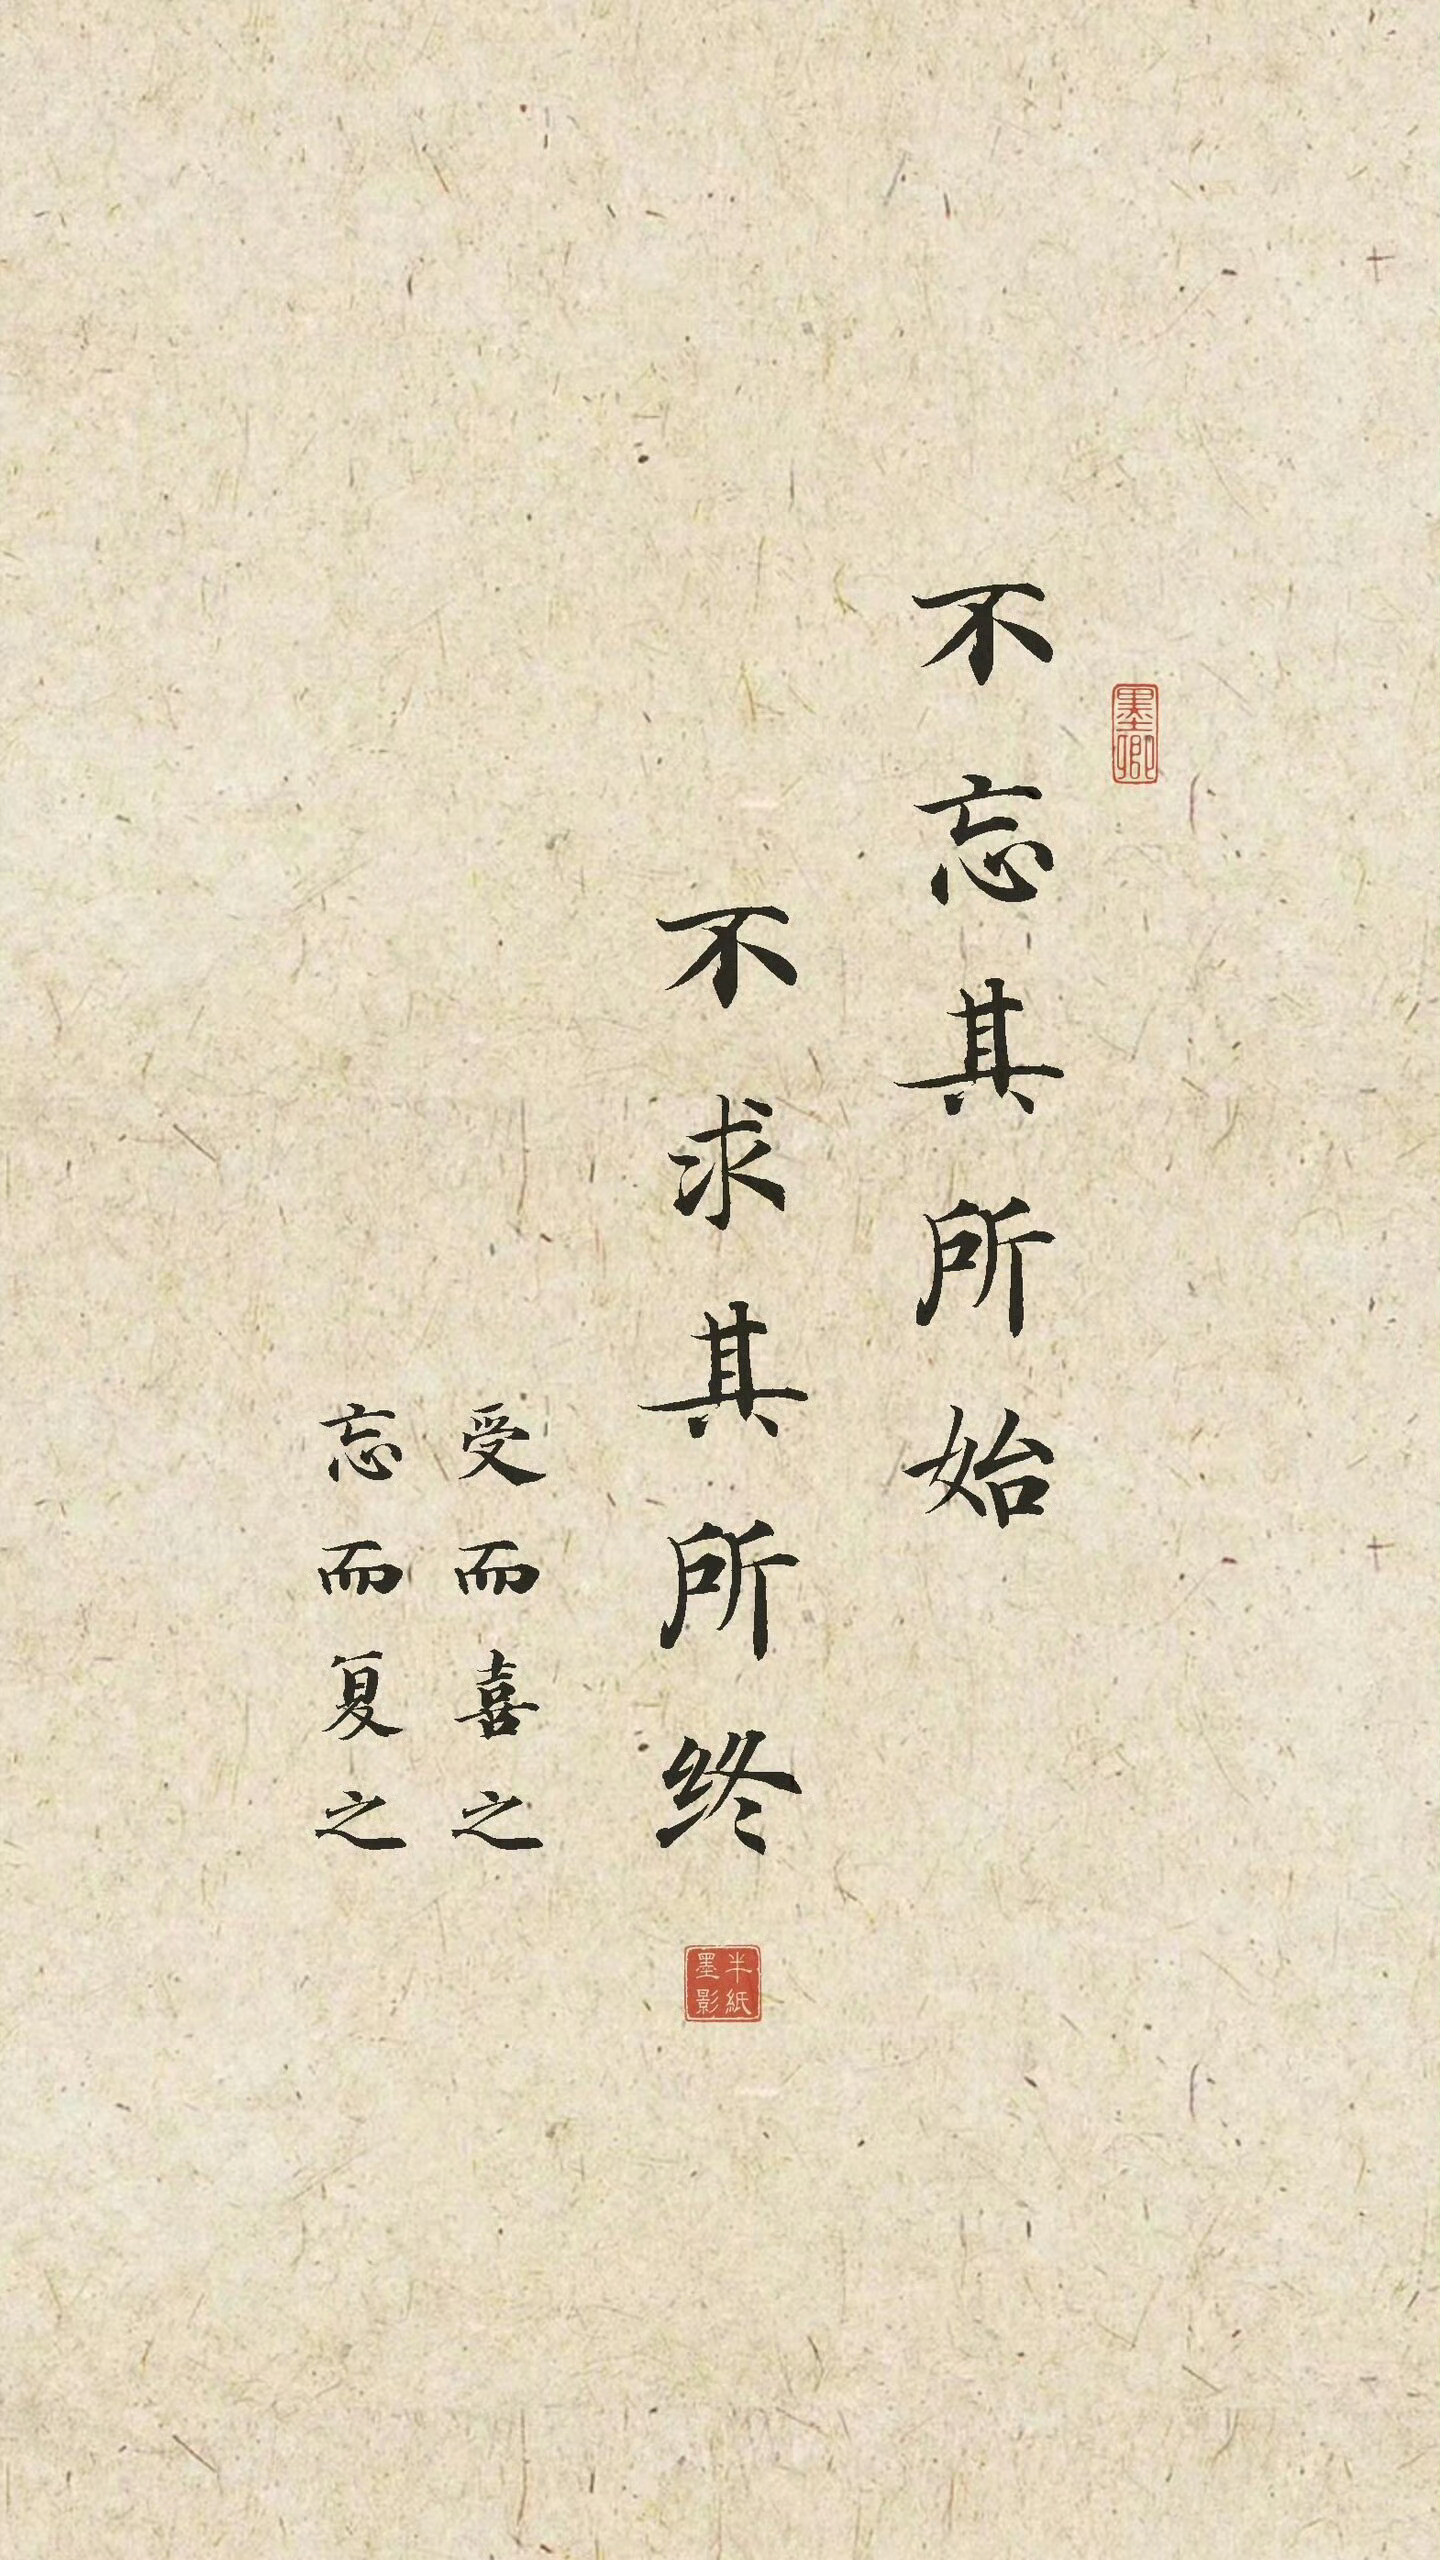 墨卿
不忘其所始
不求其所终
半紙墨影
受而喜之
忘而复之